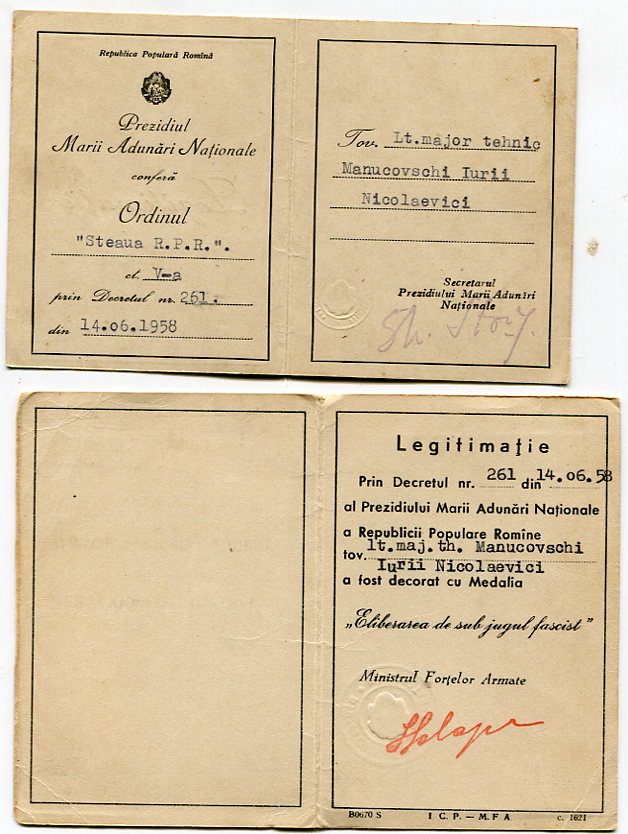 Republica Populară Romînă
Prezidiul
Marii Adunări Naționale
conferă
Ordinul
"Steaua R.P.R.".
cl. V-a
prin Decretul nr. 261.
din 14.06.1958
Tov. Lt.major tehnic
Manucovschi Iurii
Nicolaevici
Secretarul
Prezidiului Marii Adunări
Naționale
Legitimație
Prin Decretul nr. 261 din 14.06.58
al Prezidiului Marii Adunări Naționale
a Republicii Populare Romîne
tov. lt.maj.th. Manucovschi
Iurii Nicolaevici
a fost decorat cu Medalia
„Eliberarea de sub jugul fascist”
Ministrul Forțelor Armate
B0670 S I C P. — M. F A c. 1621